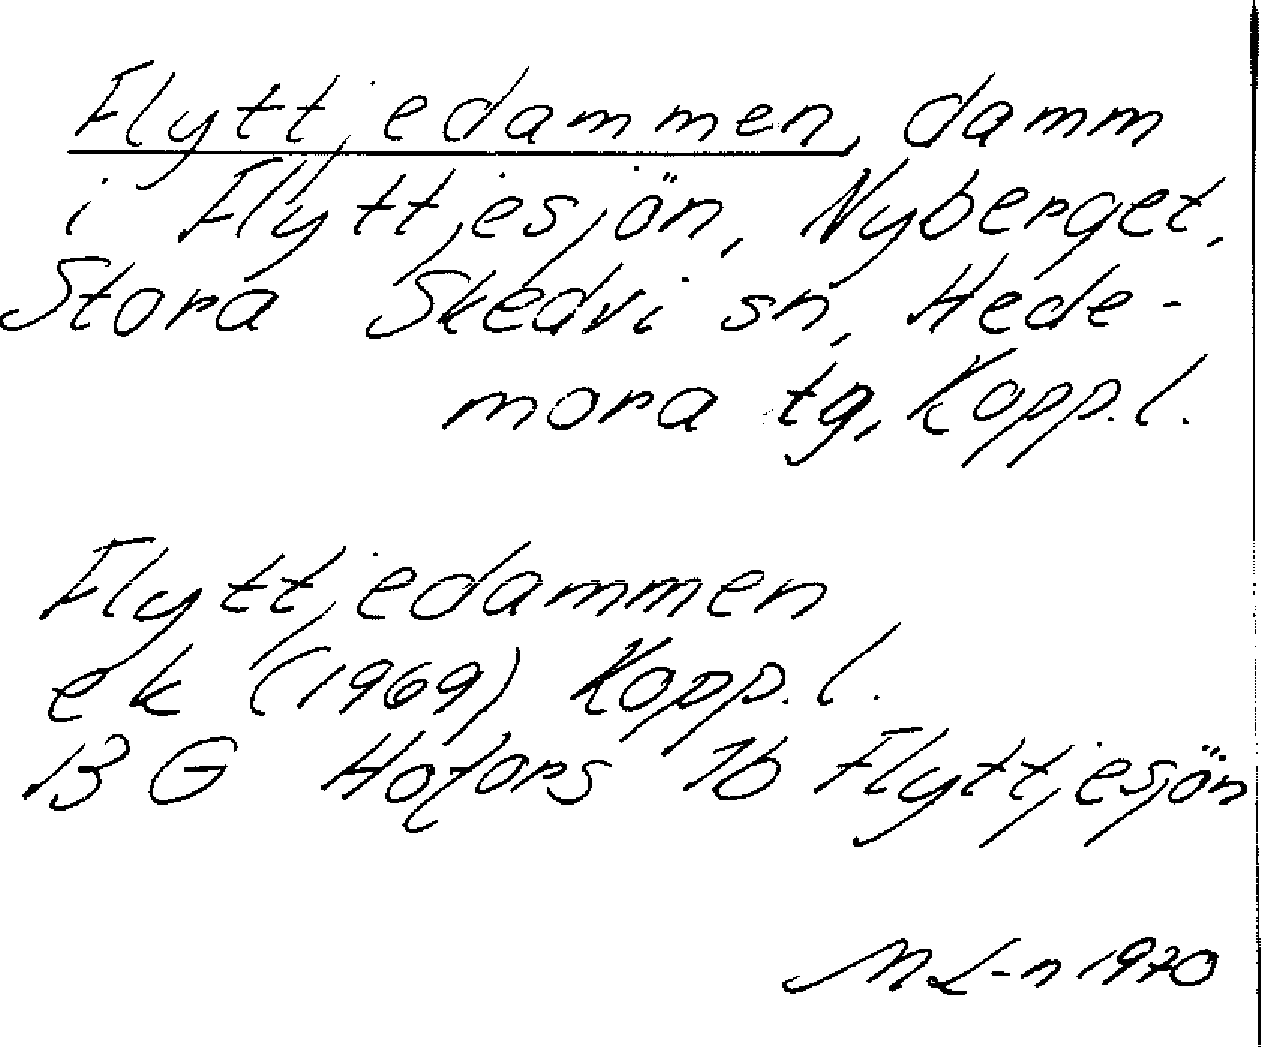 Flyttjedammen, damm
i Flyttjesjön, Nyberget,
Stora Skedvi sn, Hede-
mora tg, Kopp.l.
Flyttjedammen
ek (1969) Kopp.l.
13 G Hofors 1b Flyttjesjön
M L-n 1970